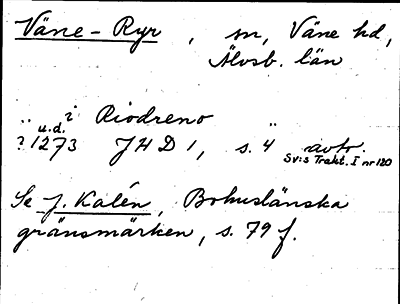 Väne-Ryr, sn, Väne hd,
Älvsb. län
.. i Riodreno ..
u.d.
? 1273 JHD 1, s. 4 avtr.
Sv:s Trakt. I nr 120
Se J. Kalén, Bohuslänska
gränsmärken, s. 79 f.